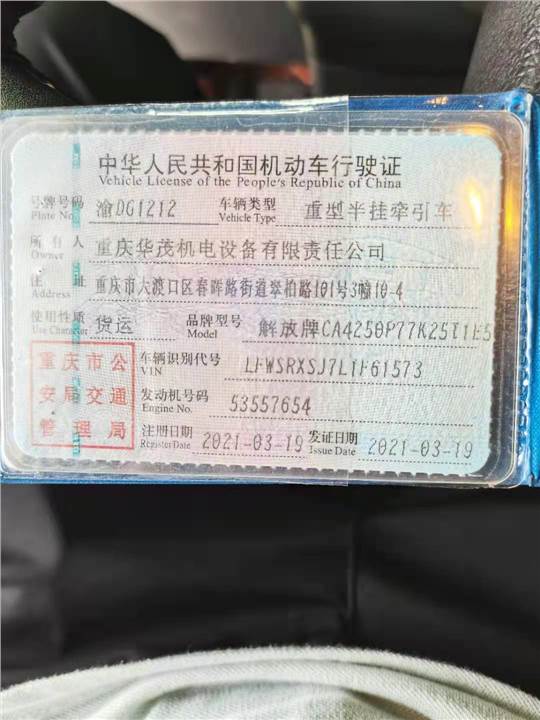 中华人民共和国机动车行驶证
Vehicle License of the People's Republic of China
号牌号码 渝DG1212 车辆类型 重型半挂牵引车
Plate No. Vehicle Type
所有人 重庆华茂机电设备有限责任公司
Owner
住址 重庆市大渡口区春晖路街道翠柏路101号3幢10-4
Address
使用性质 货运 品牌型号 解放牌CA4250P77K25T1E5
Use Character Model
重庆市公安局交通管理局
车辆识别代号 LFWSRXSJ7L1F61573
VIN
发动机号码 53557654
Engine No.
注册日期 2021-03-19 发证日期 2021-03-19
Register Date Issue Date